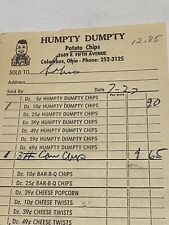 HUMPTY DUMPTY
12.85
Potato Chips
2689 E. FIFTH AVENUE
Columbus, Ohio - Phone: 252-3125
SOLD TO
Address
Sold by Date 7-27
1 Dz. 5¢ HUMPTY DUMPTY CHIPS 90
Dz. 10¢ HUMPTY DUMPTY CHIPS
Dz. 29¢ HUMPTY DUMPTY CHIPS
Dz. 39¢ HUMPTY DUMPTY CHIPS
Dz. 49¢ HUMPTY DUMPTY CHIPS
Dz. 59¢ HUMPTY DUMPTY CHIPS
Dz. 69¢ HUMPTY DUMPTY CHIPS
Corn Chips 4 65
Dz. 10¢ BAR-B-Q CHIPS
Dz. 25¢ BAR-B-Q CHIPS
Dz. 39¢ CHEESE POPCORN
Dz. 10¢ CHEESE TWISTS
Dz. 29¢ CHEESE TWISTS
Dz. 39¢ CHEESE TWISTS
Dz. 49¢ CHEESE TWISTS